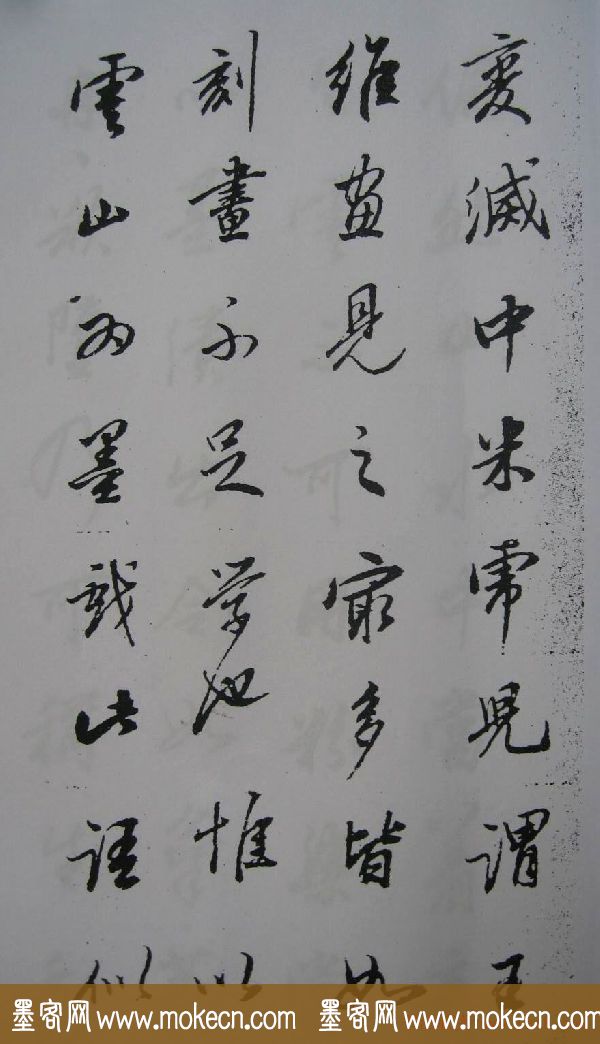 變滅中米虎兒謂王
維畫見之最多皆如
刻畫不足學也惟以
雲山為墨戲此語似
墨客网 www.mokecn.com 墨客网 www.mokecn.com